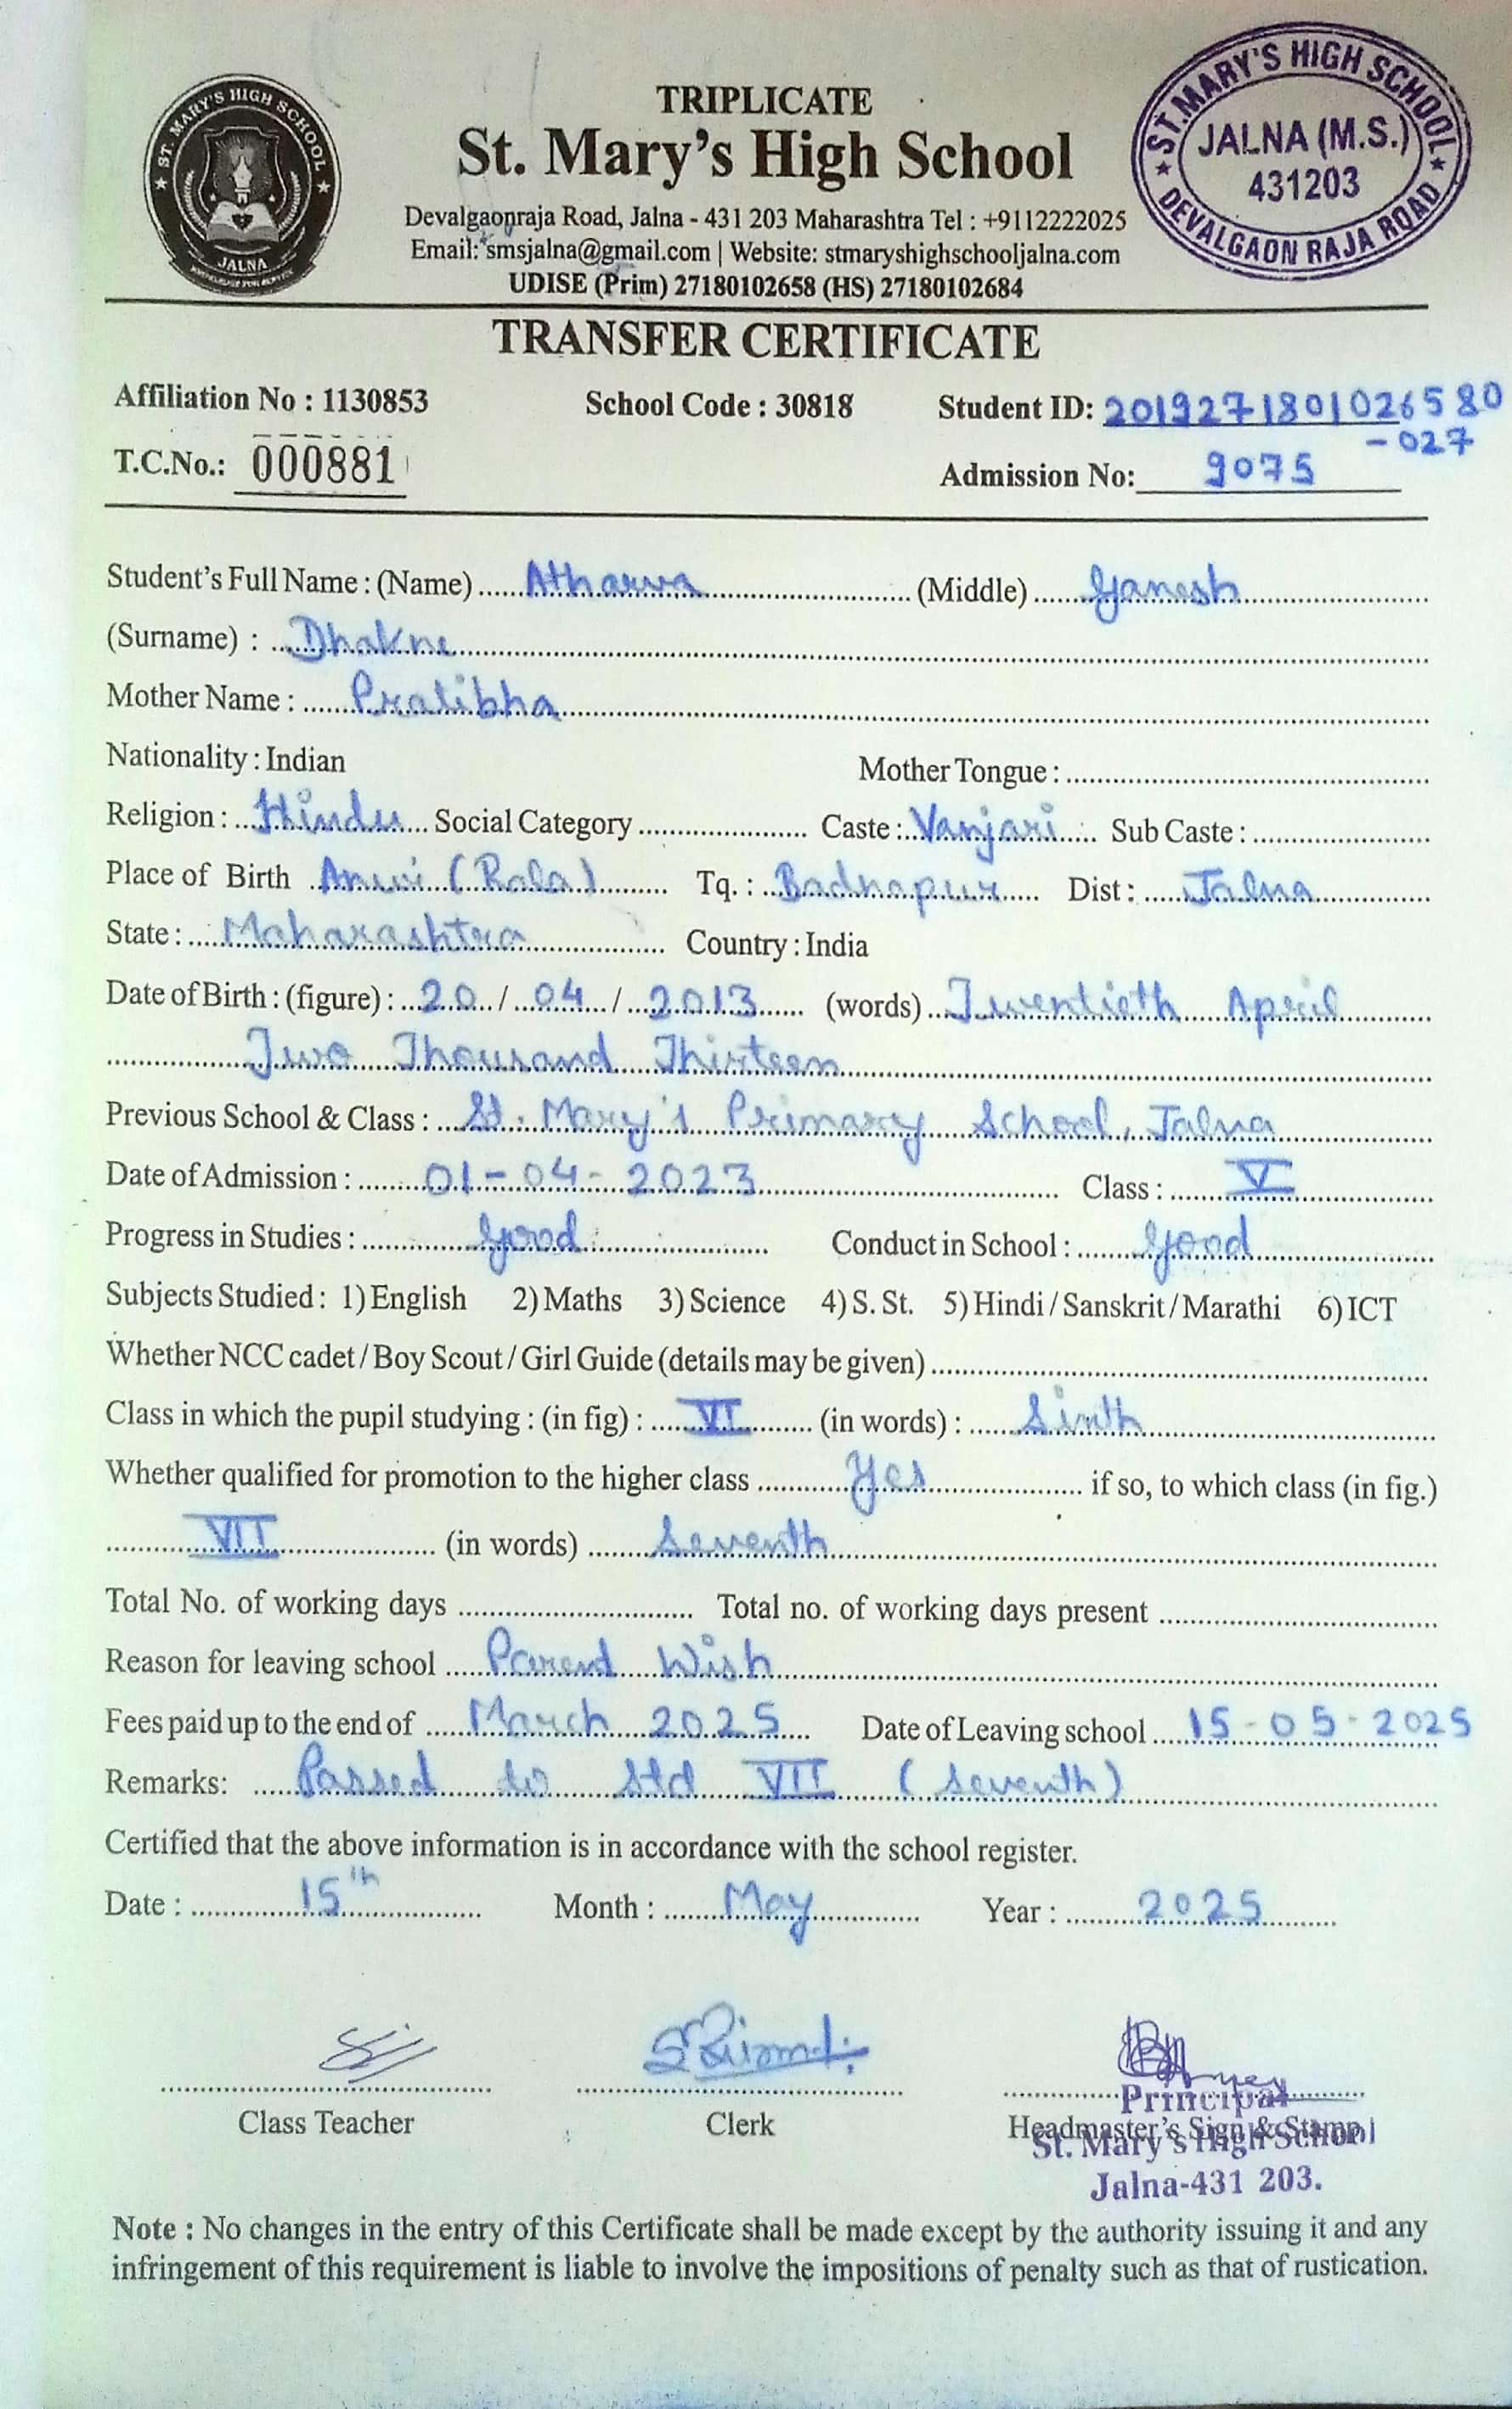 TRIPLICATE
St. Mary's High School
Devalgaonraja Road, Jalna - 431 203 Maharashtra Tel : +9112222025
Email: smsjalna@gmail.com | Website: stmaryshighschooljalna.com
UDISE (Prim) 27180102658 (HS) 27180102684
ST. MARY'S HIGH SCHOOL
JALNA
ST. MARY'S HIGH SCHOOL
JALNA (M.S.)
431203
DEVALGAON RAJA ROAD
TRANSFER CERTIFICATE
Affiliation No : 1130853 School Code : 30818 Student ID: 2019271801026580
-027
T.C.No.: 000881 Admission No: 9075
Student's Full Name : (Name) Atharva (Middle) Ganesh
(Surname) : Dhakne
Mother Name : Pratibha
Nationality : Indian Mother Tongue :
Religion : Hindu Social Category Caste : Vanjari Sub Caste :
Place of Birth Anwi (Rala) Tq. : Badnapur Dist : Jalna
State : Maharashtra Country : India
Date of Birth : (figure) : 20 / 04 / 2013 (words) Twentieth April
Two Thousand Thirteen
Previous School & Class : St. Mary's Primary School, Jalna
Date of Admission : 01-04-2023 Class : V
Progress in Studies : Good Conduct in School : Good
Subjects Studied : 1) English 2) Maths 3) Science 4) S. St. 5) Hindi / Sanskrit / Marathi 6) ICT
Whether NCC cadet / Boy Scout / Girl Guide (details may be given)
Class in which the pupil studying : (in fig) : VI (in words) : Sixth
Whether qualified for promotion to the higher class Yes if so, to which class (in fig.)
VII (in words) Seventh
Total No. of working days Total no. of working days present
Reason for leaving school Parent Wish
Fees paid up to the end of March 2025 Date of Leaving school 15-05-2025
Remarks: Passed to Std VII (Seventh)
Certified that the above information is in accordance with the school register.
Date : 15th Month : May Year : 2025
Class Teacher Clerk Headmaster's Sign & Stamp
Principal
St. Mary's High School
Jalna-431 203.
Note : No changes in the entry of this Certificate shall be made except by the authority issuing it and any
infringement of this requirement is liable to involve the impositions of penalty such as that of rustication.